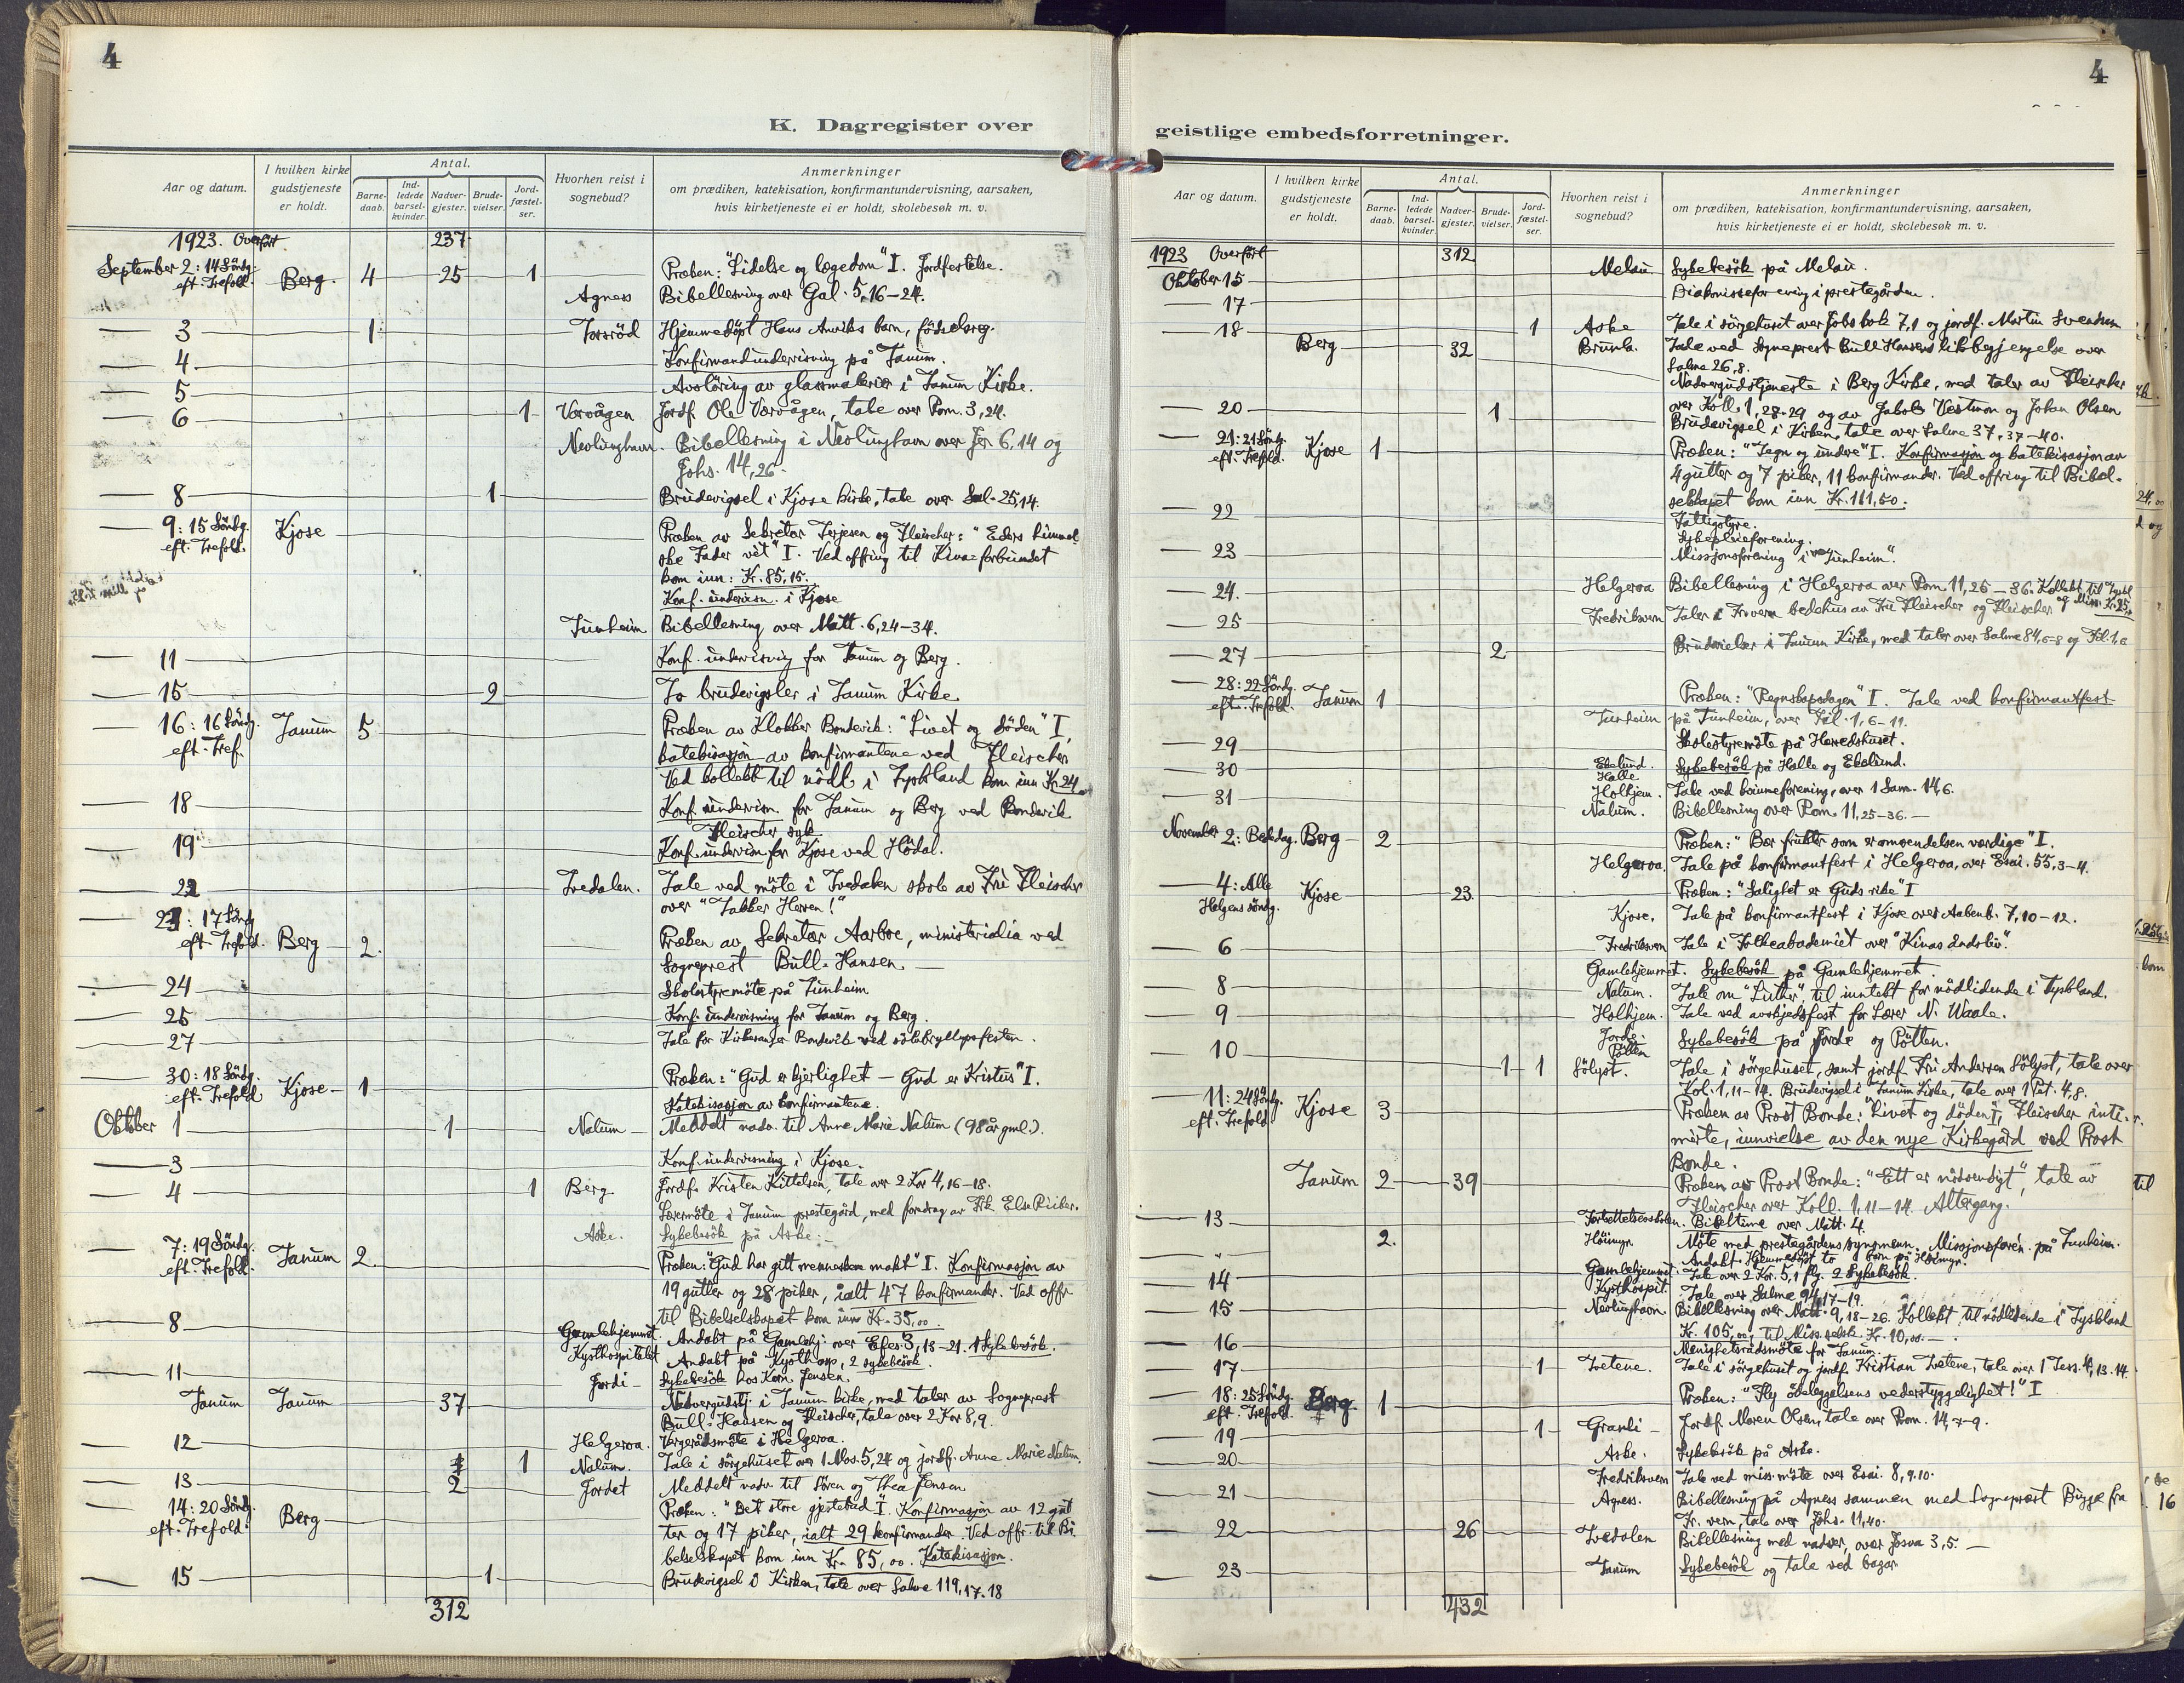 4
K. Dagregister over
Aar og datum.
I hvilken kirke gudstjeneste er holdt.
Antal.
Barne-daab.
Ind-ledede barsel-kvinder.
Nadver-gjester.
Brude-vielser.
Jord-fæstel-ser.
Hvorhen reist i sognebud?
Anmerkninger
om prædiken, katekisation, konfirmantundervisning, aarsaken,
hvis kirketjeneste ei er holdt, skolebesøk m. v.
1923. Overført 237
September 2: 14 Søndg. eft. Trefold. Berg 4 25 1 Præken: "Lidelse og lægedom" I. Jordfestelse.
Agness Bibellesning over Gal. 5,16-24.
3 1 Torsrød Hjemmedøpt Hans Anviks barn, fødselsreg.
4 Konfirmandundervisning på Tanum.
5 Avsløring av glassmalerier i Tanum Kirke.
6 1 Værvågen Jordf. Ole Værvågen, tale over Rom. 3,24.
Nevlunghavn. Bibellesning i Nevlunghavn over Jer. 6,14 og
Johs. 14,26.
8 1 Brudevigsel i Kjose kirke, tale over Sal. 25,14.
9: 15 Søndg. eft. Trefold. Kjose Præken av Sekretær Terjesen og Fleischer: "Eders himmel
ske Fader vet" I. Ved offring til Kina=forbundet
kom inn: Kr. 85,15.
Konf. undervisn. i Kjose
Tunheim Bibellesning over Matt. 6,24-34.
11 Konf. undervisning for Tanum og Berg.
15 2 To brudevigsler i Tanum Kirke.
16: 16 Søndg. eft. Tref. Tanum 5 Præken av Klokker Bondevik: "Livet og døden" I,
katekisasjon av konfirmantene ved Fleischer
Ved kollekt til nødl. i Tyskland kom inn Kr. 24
18 Konf. undervisn. for Tanum og Berg ved Bondevik
Fleischer syk
19 Konf. undervisn for Kjose ved Hødal.
22 Tvedalen. Tale ved møte i Tvedalen skole av Fru Fleischer
over "Takker Herren!"
23: 17 Søndg eft. Trefold. Berg 2 Præken av Sekretær Aarboe, ministerialia ved
Sogneprest Bull-Hansen.
24 Skolestyremøte på Tunheim
25 Konf. undervisning for Tanum og Berg.
27 Tale for Kirkesanger Bondevik ved sølvbryllupsfesten.
30: 18 Søndg. eft. Trefold Kjose 1 Præken: "Gud er kjerlighet - Gud er Kristus" I.
Katekisasjon av konfirmantene.
Oktober 1 1 Nalum Meddelt nadv. til Anne Marie Nalum (98 år gml.).
3 Konf. undervisning i Kjose.
4 1 Berg. Jordf. Kristen Kittelsen, tale over 2 Kor 4,16-18.
Lærermøte i Tanum prestegård, med foredrag av Frk. Else
Aske. Sykebesøk på Aske.
7: 19 Søndg. eft. Trefold. Tanum 2 Præken: "Gud har gitt menneskene makt" I. Konfirmasjon av
19 gutter og 28 piker, ialt 47 konfirmander. Ved offr
til Bibelselskapet kom inn Kr. 35,00.
8 Gamlehjemmet. Andakt på Gamlehj. over Efes. 3,13-21. 1 Sykebesøk.
Kysthospitalet Andakt på Kysthosp., 2 sykebesøk.
11 Jordi Sykebesøk hos Karn. Jensen.
Tanum Tanum 37 Nadvergudstj. i Tanum kirke, med taler av Sogneprest
Bull-Hansen og Fleischer, tale over 2 Kor 8,9.
12 Helgeroa. Vergerådsmøte i Helgeroa.
1 Nalum. Tale i sørgehuset over 1 Mos. 5,24 og jordf. Anne Marie Nalum.
13 2 Jordet Meddelt nadv. til Søren og Thea Jensen.
14: 20 Søndg. eft. Trefold. Berg Præken: "Det store gjestebud" I. Konfirmasjon av 12 gut
ter og 17 piker, ialt 29 konfirmander. Ved offr. til Bi
belselskapet kom inn Kr. 85,00. Katekisasjon.
15 1 Brudevigsel i Kirken, tale over Salme 119,17-18
312
4
geistlige embedsforretninger.
Aar og datum.
I hvilken kirke gudstjeneste er holdt.
Antal.
Barne-daab.
Ind-ledede barsel-kvinder.
Nadver-gjester.
Brude-vielser.
Jord-fæstel-ser.
Hvorhen reist i sognebud?
Anmerkninger
om prædiken, katekisation, konfirmantundervisning, aarsaken,
hvis kirketjeneste ei er holdt, skolebesøk m. v.
1923 Overført 312
Oktober 15 Melau Sykebesøk på Melau.
17 Diakonisseforening i prestegården.
18 1 Aske Tale i sørgehuset over Jobs bok 7,1 og jordf. Martin Svendsen
Berg 32 Brunla. Tale ved Sogneprest Bull Hansens likbegjengelse over
Salme 26,8.
Nadvergudstjeneste i Berg Kirke, med taler av Fleischer
over Koll. 1,28-29 og av Jakob Vestmon og Johan Olsen
20 1 Brudevigsel i Kirken, tale over Salme 37,37-40.
21: 21 Søndg. eft. Trefold. Kjose 1 Præken: "Tegn og undere" I. Konfirmasjon og katekisasjon av
4 gutter og 7 piker, 11 konfirmander. Ved offring til Bibel-
selskapet kom inn Kr. 111,50.
22 Fattigstyre.
Sykepleieforening.
23 Missjonsforening i "Tunheim".
24. Helgeroa Bibellesning i Helgeroa over Rom. 11,25-36. Kollekt til Tyskl
og Miss. Kr. 25
25 Fredriksvern Taler i Fr.vern bedehus av Fru Fleischer og Fleischer
27 2 Brudvielser i Tanum Kirke, med taler over Salme 84,6-8 og Fil. 1,6
28: 22 Søndg. eft. Trefold. Tanum 1 Præken: "Regnskapsdagen" I. Tale ved konfirmantfest
Tunheim på Tunheim, over Fil. 1,6-11.
29 Skolestyremøte på Herredshuset.
30 Ekelund. Halle Sykebesøk på Halle og Ekelund.
31 Holhjem. Tale ved kvinneforening, over 1 Sam. 14,6.
Nalum. Bibellesning over Rom. 11,25-36.
November 2: Bededag. Berg 2 Præken: "Bær frukter som er omvendelsen værdige" I.
Helgeroa. Tale på konfirmantfest i Helgeroa, over Esai. 55,3-4.
4: Alle Helgens søndg. Kjose 23 Præken: "Salighet er Guds rike" I
Kjose. Tale på konfirmantfest i Kjose over Aabenb. 7,10-12.
6 Fredriksvern Tale i Folkeakademiet over "Kinas åndsliv".
Gamlehjemmet. Sykebesøk på Gamlehjemmet.
8 Nalum. Tale om "Luther", til inntekt for nødlidende i Tyskland.
9 Holhjem. Tale ved avskjedsfest for Lærer N. Waale.
10 Jorde. Pøtten Sykebesøk på Jorde og Pøtten.
1 1 Sølyst. Tale i sørgehuset, samt jordf. Fru Andersen Sølyst, tale over
Kol. 1,11-14. Brudevigsel i Tanum Kirke, tale over 1 Pet. 4,8.
11: 24 Søndg. eft. Trefold. Kjose 3 Præken av Prost Bonde: "Livet og døden" I, Fleischer inti-
merte, innvielse av den nye Kirkegård ved Prost
Bonde.
Tanum 2 39 Præken av Prost Bonde: "Ett er nødvendigt", tale av
Fleischer over Koll. 1,11-14. Altergang.
13 Fortsettelsesskolen. Bibeltime over Matt. 4.
" 2. Høimyr. Møte med prestegårdens synsmenn. Missjonsforen. på Tunheim.
Andakt. Hjemmedøpt to barn på Høimyr.
14 Gamlehjemmet. Tale over 2 Kor. 5,1 flg. 2 Sykebesøk.
Kysthospit. Tale over Salme 94,17-19.
15 Nevlunghavn Bibellesning over Matt. 9,18-26. Kollekt til nødlidende i Tyskland
Kr. 105,00, til Miss.selsk. Kr. 10,00.
16 Menighetsrådsmøte for Tanum.
17 1 Tvetene. Tale i sørgehuset og jordf. Kristian Tvetene, tale over 1 Tess. 4,13-14.
18: 25 Søndg. eft. Trefold. Berg 1 Præken: "Fly ødeleggelsens vederstyggelighet!" I
19 1 Granli Jordf. Maren Olsen, tale over Rom. 14,7-9.
20 Aske. Sykebesøk på Aske.
Fredriksvern Tale ved miss. møte over Esai. 8,9.10.
21 Agness. Bibellesning på Agness sammen med Sogneprest Bugge fra
Fr. vern, tale over Johs. 11,40.
22 26 Tvedalen Bibellesning med nadver, over Josva 3,5.
23 Tanum Sykebesøk og tale ved basar
432